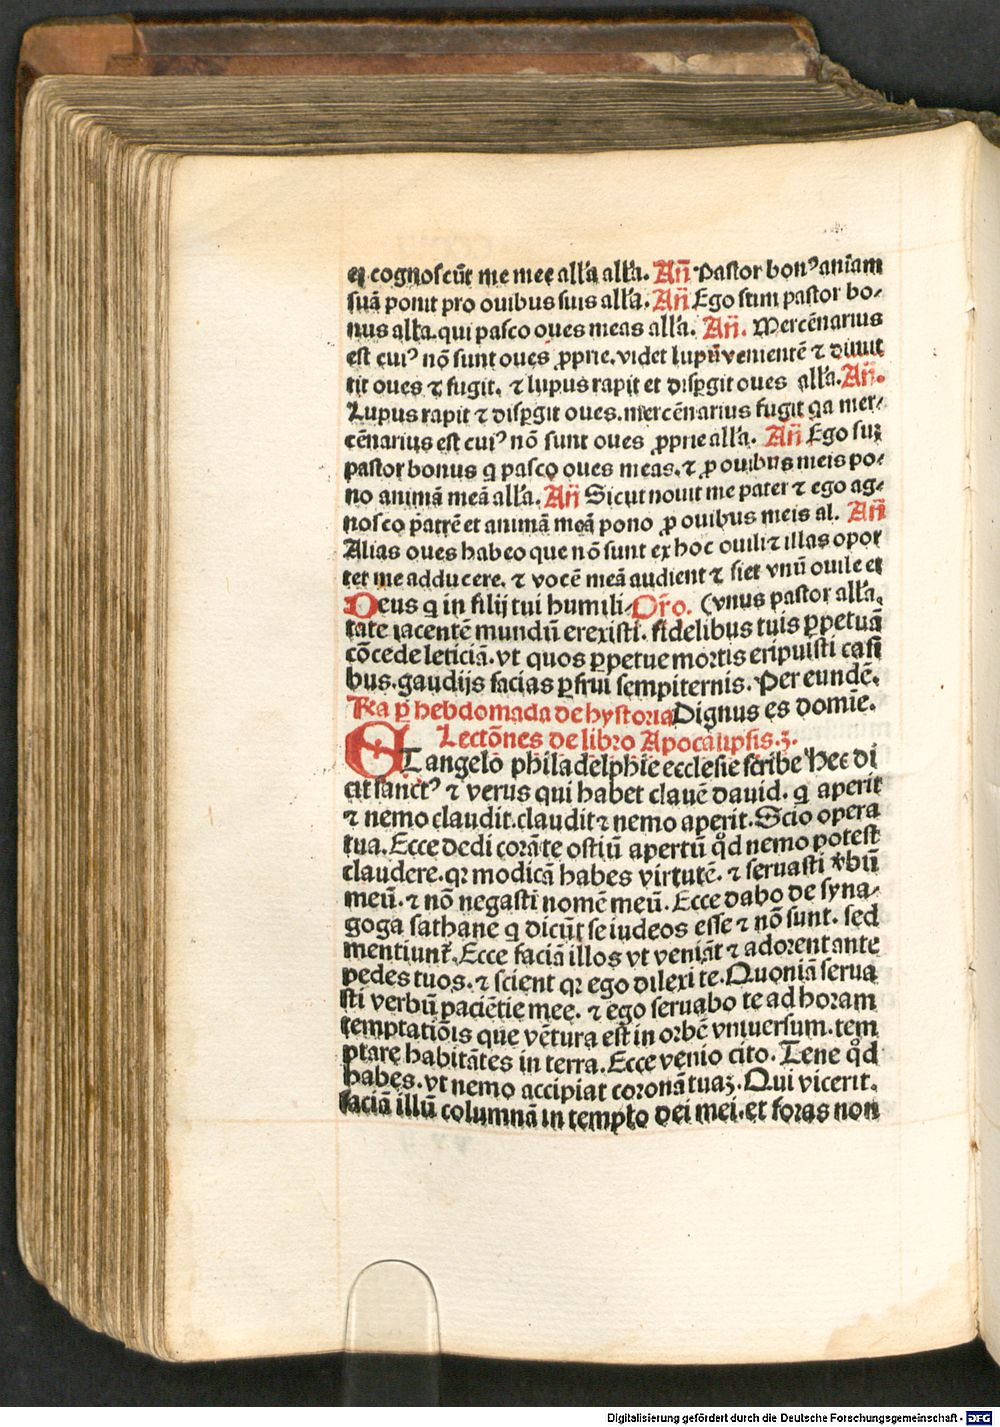 et cognoscūt me mee all'a all'a. Añ Pastor bonꝰ aniam
suā ponit pro ouibus suis all'a. Añ Ego sum pastor bo⸗
nus all'a. qui pasco oues meas all'a. Añ. Mercēnarius
est cuiꝰ nō sunt oues ꝓprie. videt lupū venientē ⁊ dimit
tit oues ⁊ fugit. ⁊ lupus rapit et disꝑgit oues all'a. Añ.
Lupus rapit ⁊ disꝑgit oues. mercēnarius fugit qa mer⸗
cēnarius est cuiꝰ nō sunt oues ꝓprie all'a. Añ Ego suꝫ
pastor bonus q̄ pasco oues meas. ⁊ ꝓ ouibus meis po⸗
no animā meā all'a. Añ Sicut nouit me pater ⁊ ego ag⸗
nosco patrē et animā meā pono ꝓ ouibus meis al. Añ
Alias oues habeo que nō sunt ex hoc ouili ⁊ illas opor
tet me adducere. ⁊ vocē meā audient ⁊ fiet vnū ouile et
Deus q̄ in filij tui humili⸗ Oro. (vnus pastor all'a.
tate iacentē mundū erexisti. fidelibus tuis ꝑpetuā
cōcede leticiā. vt quos ꝑpetue mortis eripuisti casi
bus. gaudijs facias ꝑfrui sempiternis. Per eundē.
Fea ꝑ hebdomada de hystoria Dignus es domie.
Lectōnes de libro Apocalipsis. 3.
ET angelo philadelphie ecclesie scribe Hec di
cit sanctꝰ ⁊ verus qui habet clauē dauid. q̄ aperit
⁊ nemo claudit. claudit ⁊ nemo aperit. Scio opera
tua. Ecce dedi corā te ostiū apertū qd̄ nemo potest
claudere. qꝛ modicā habes virtutē. ⁊ seruasti v̄bū
meū. ⁊ nō negasti nomē meū. Ecce dabo de syna⸗
goga sathane q̄ dicūt se iudeos esse ⁊ nō sunt. sed
mentiunt᷑. Ecce faciā illos vt veniāt ⁊ adorent ante
pedes tuos. ⁊ scient qꝛ ego dilexi te. Quoniā serua
sti verbū paciētie mee. ⁊ ego seruabo te ad horam
temptatiōis que vētura est in orbē vniuersum. tem
ptare habitātes in terra. Ecce venio cito. Tene qd̄
habes. vt nemo accipiat coronā tuaꝫ. Qui vicerit.
faciā illū columnā in templo dei mei. et foras non
Digitalisierung gefördert durch die Deutsche Forschungsgemeinschaft - DFG